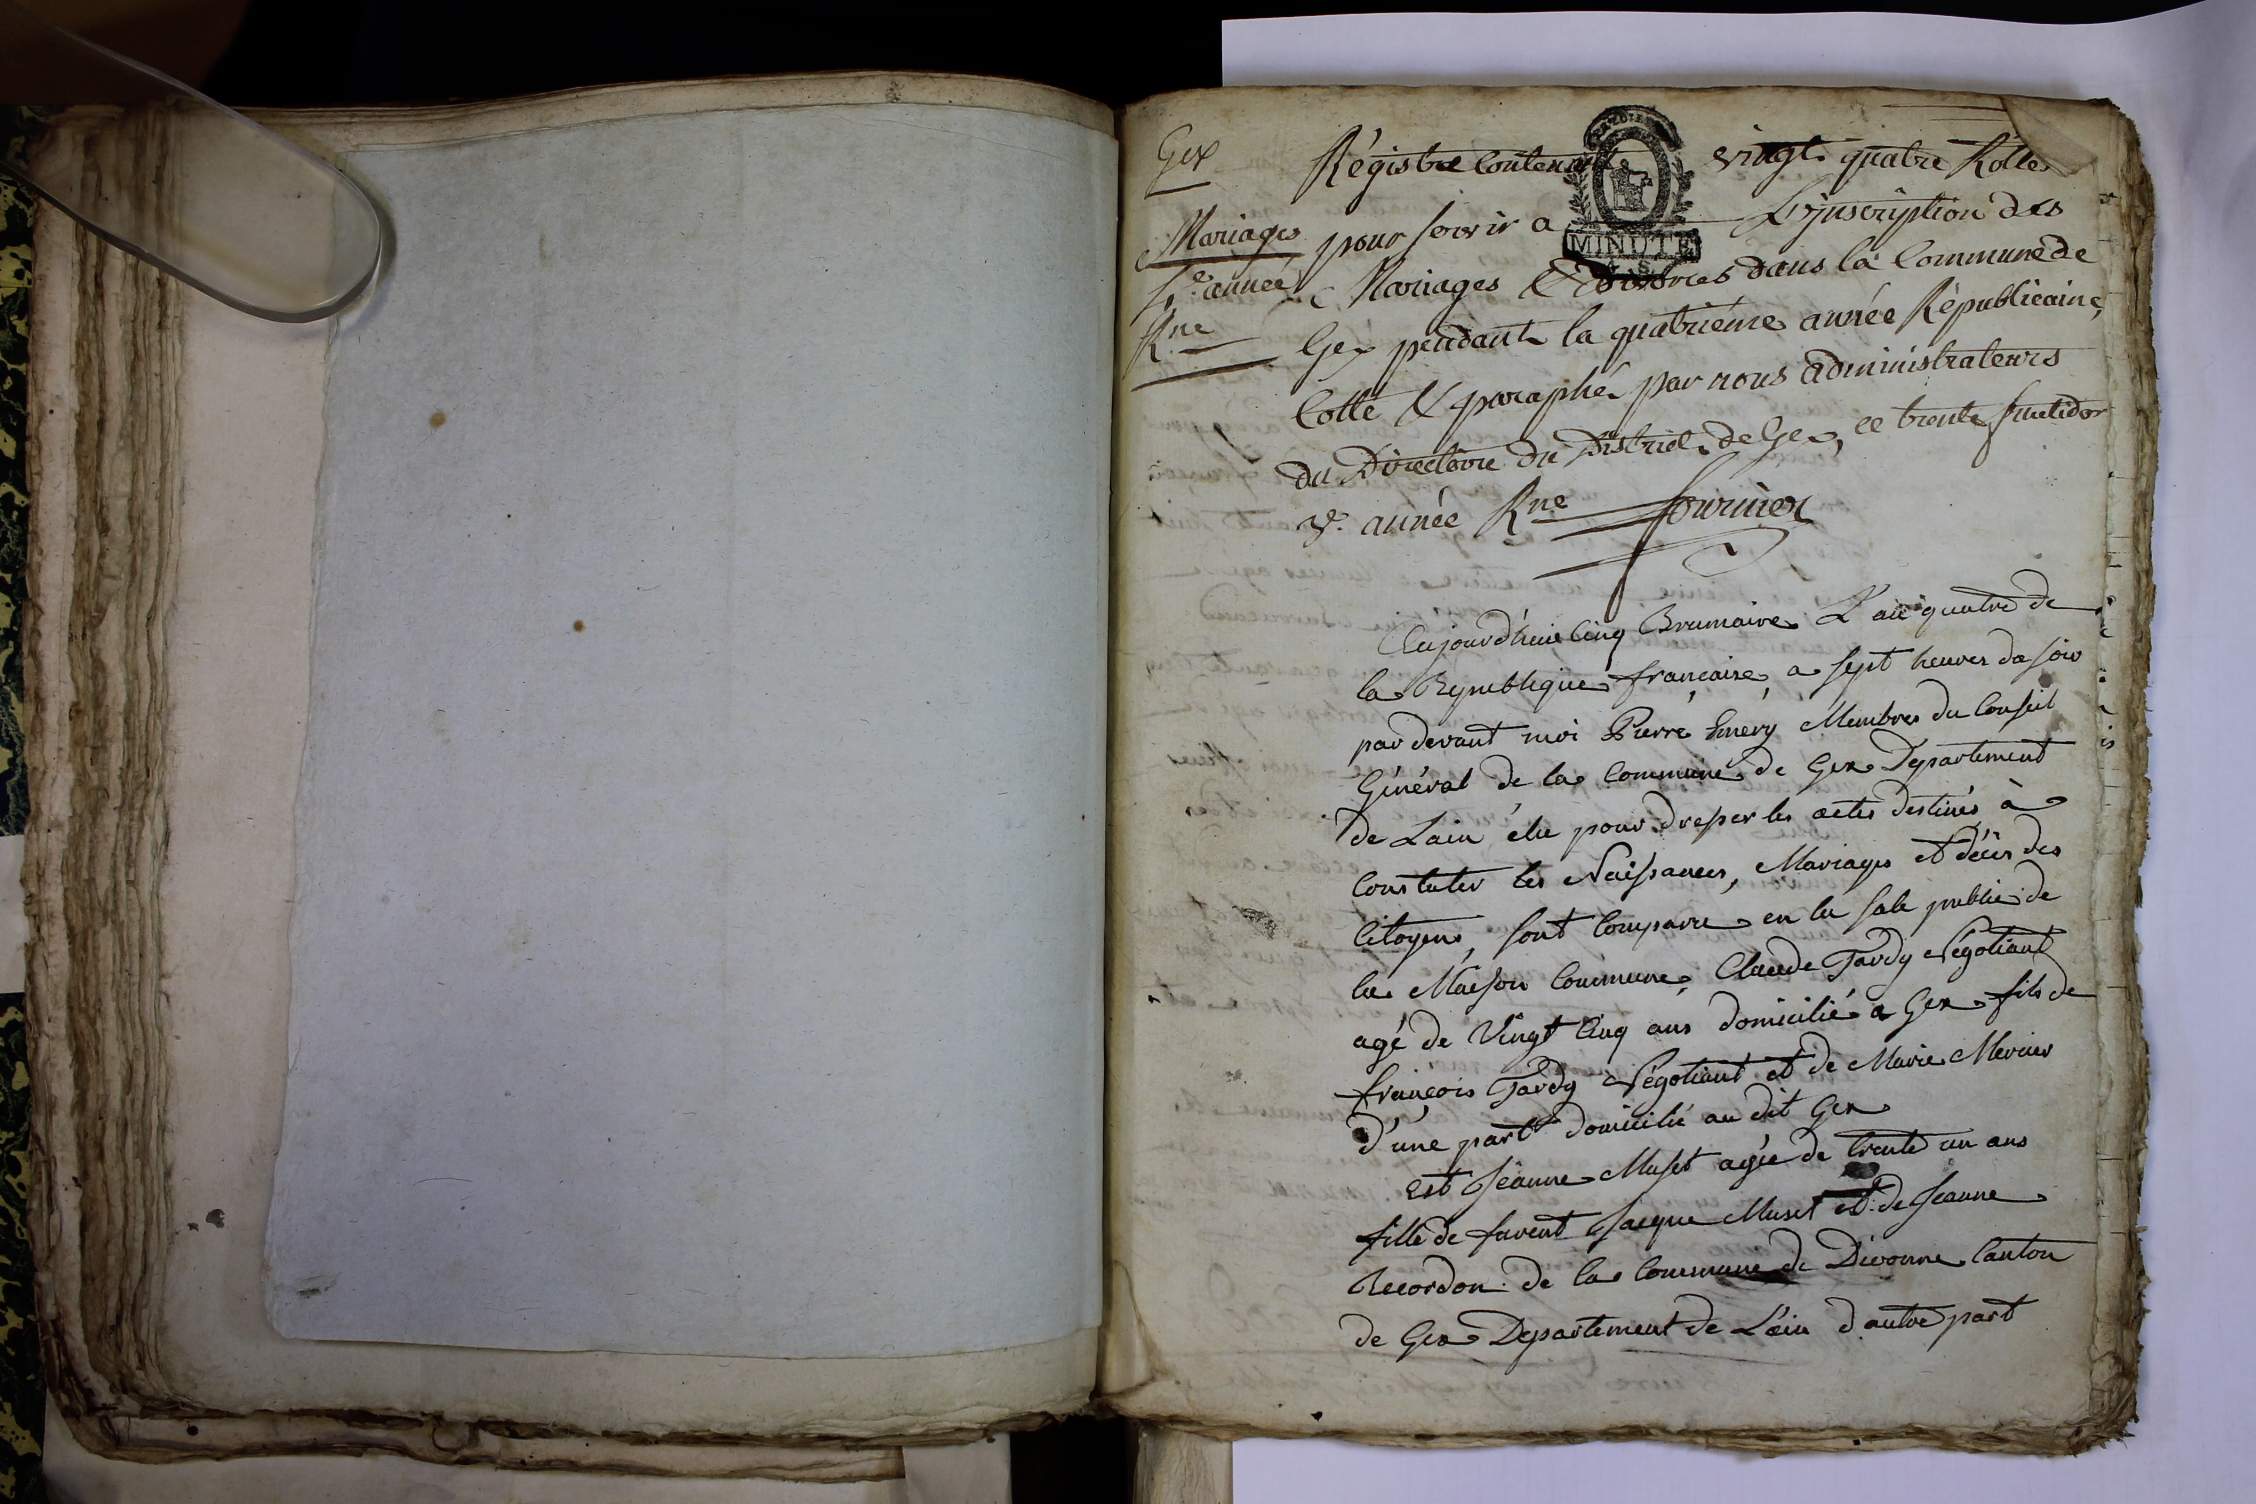 Gex
Mariages
4.e année
R.ne
Régistre Contenant vingt quatre Rolles
MINUTE
pour servir a L'inscription des
Mariages & divorces dans la Commune de
Gex pendant la quatrieme année Républicaine,
Cotté & paraphé par nous administrateurs
du Directoire du District de Gex, ce trente fructidor
3.e année R.ne Fournier
Aujourd'huie Cinq Brumaire L'an quatre de
la Republique françaire, a sept heures du soir
par devant moi Pierre Emery Membre du Conseil
Général de la Commune de Gex Departement
de Lain élu pour dresser les actes destinés à
Constater les Naissances, Mariages et décès des
Citoyens, sont Comparu en la sale public de
la Maison Commune, Claude Tardy Négotiant
agé de Vingt Cinq ans domicilié a Gex fils de
françois Tardy Négotiant et de Marie Mercier
d'une part domicilié au dit Gex
Est Jeanne Muset agée de trente un ans
fille de Jacque Muset et de Jeanne
Recordon de la Commune de Divonne Canton
de Gex Departement de L'ain d'autre part